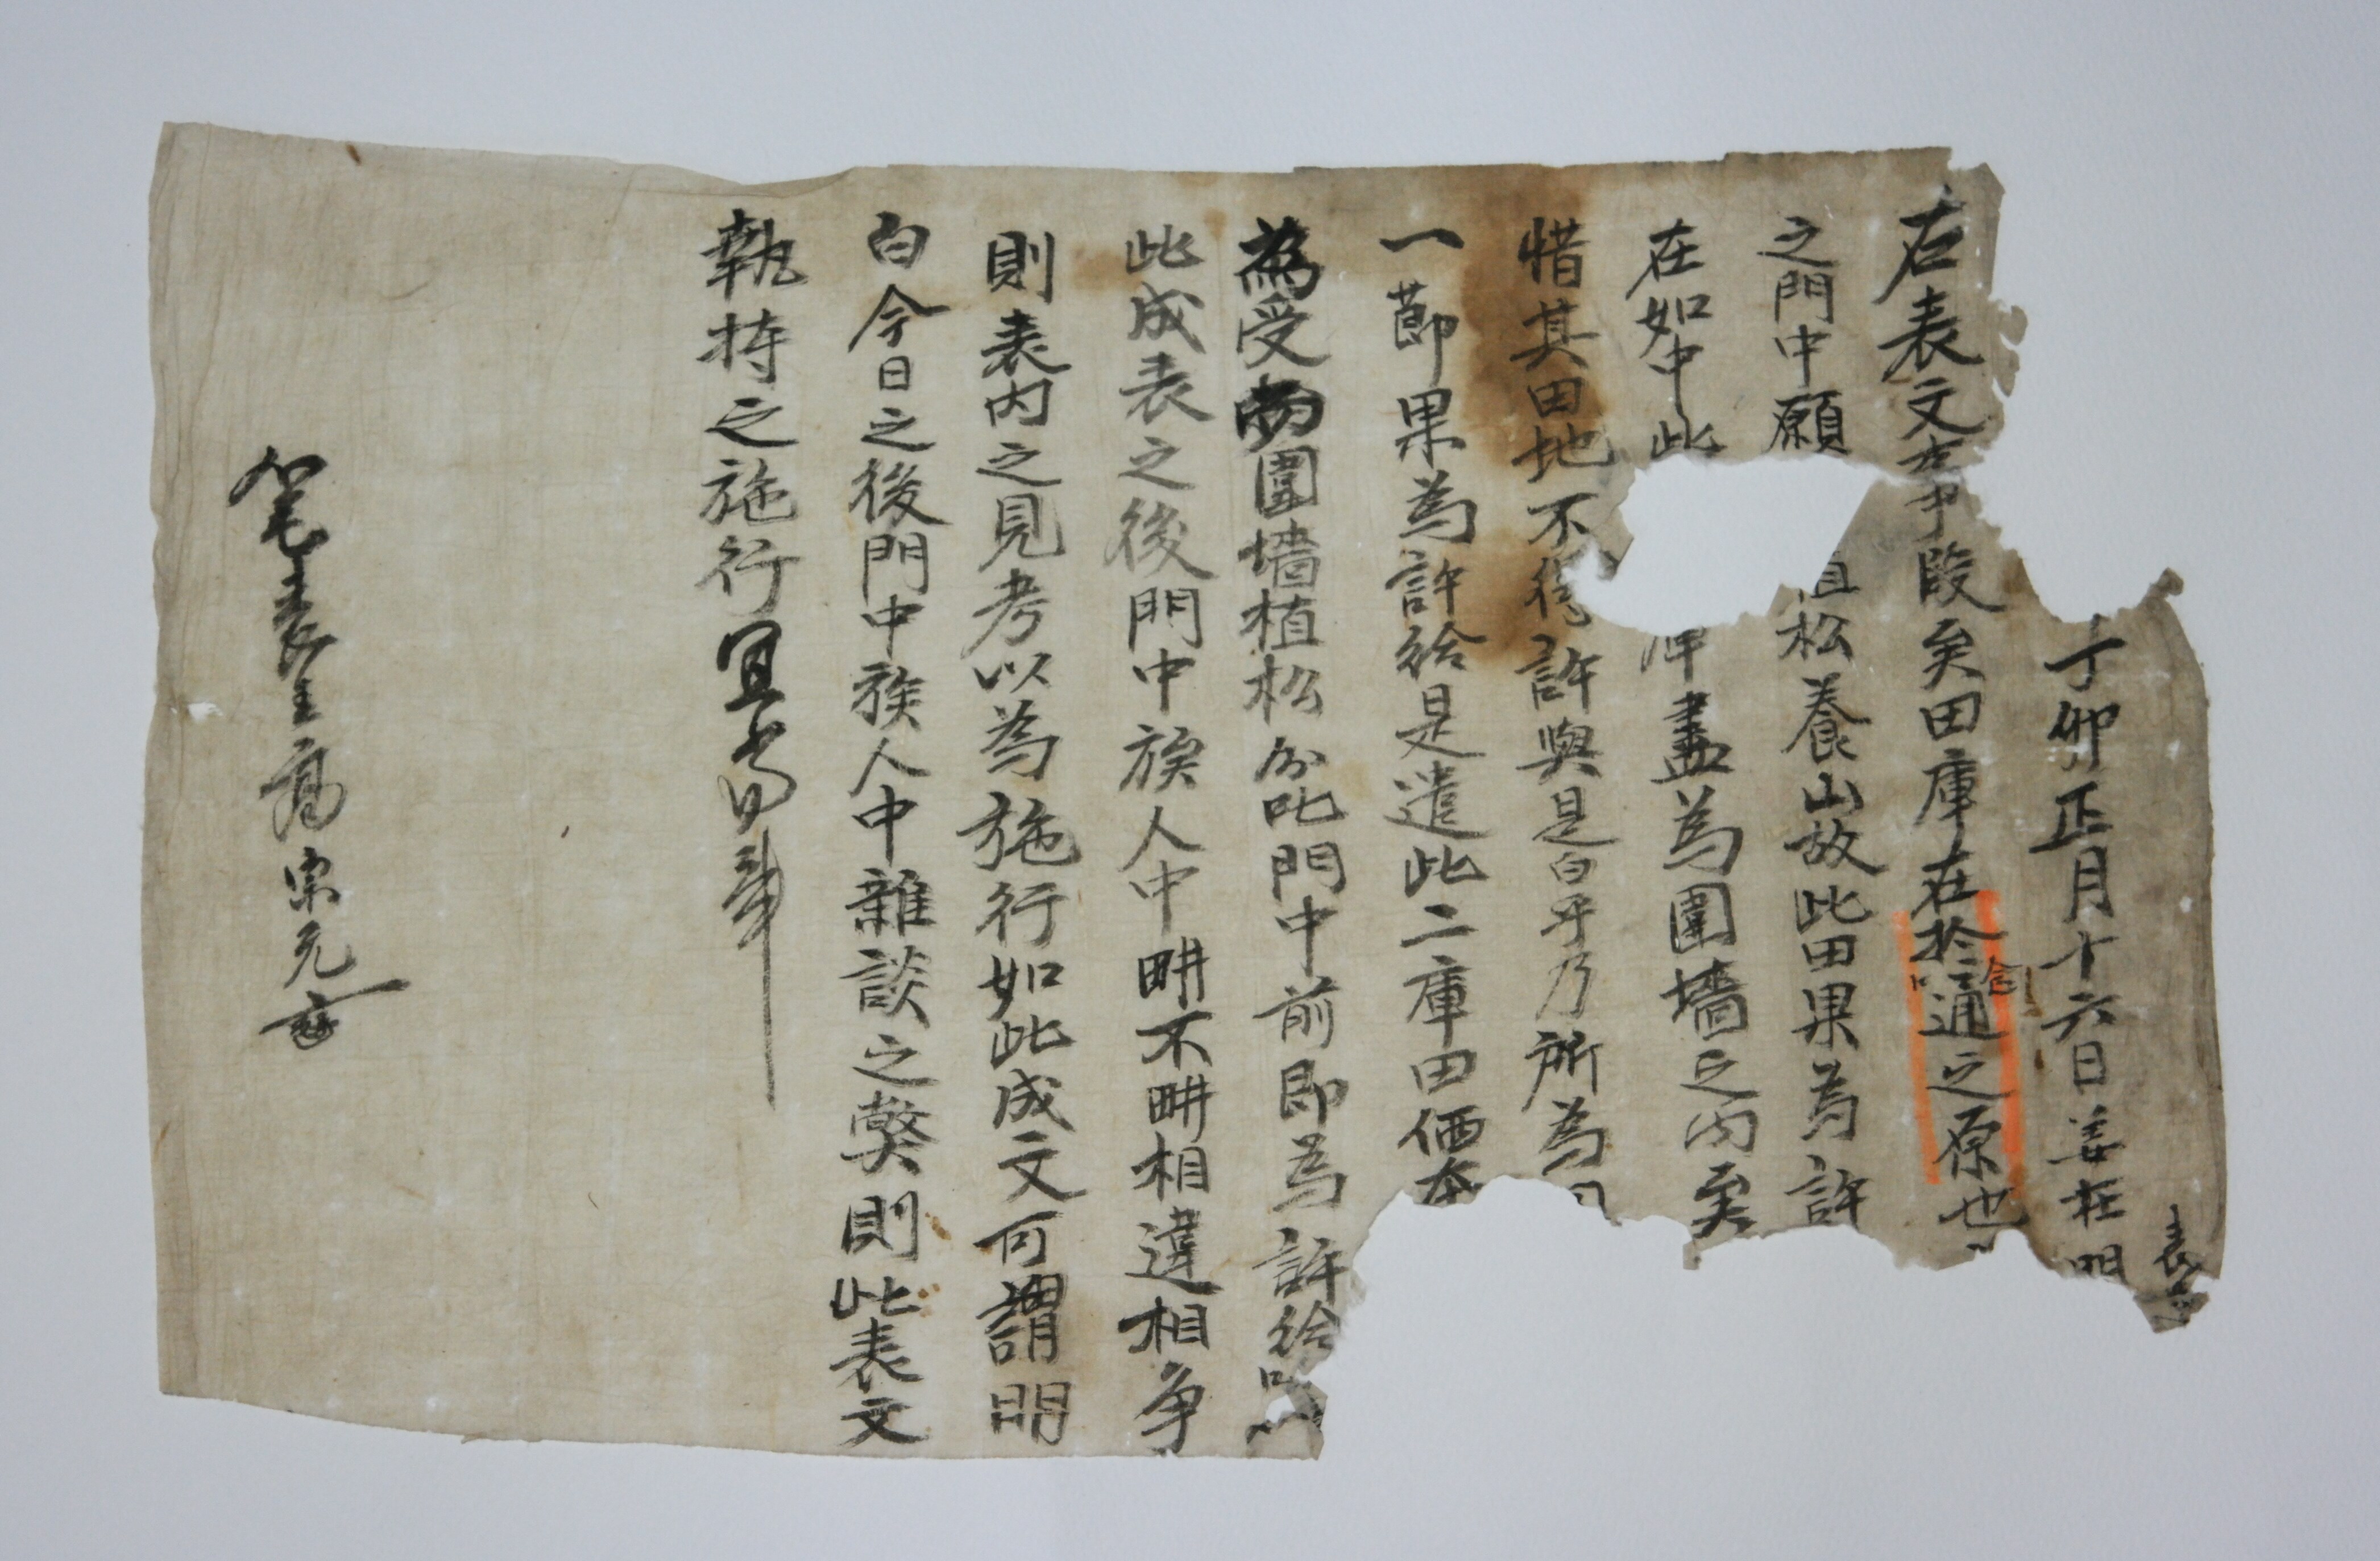 丁卯正月十六日姜在明
表
右表文事段矣田庫在於念通之原也
之門中願 松養山故此田果為許
在如中此 庫盡為圍墻之內矣
惜其田地不得許與是白乎乃所為
一節果為許給是遣此二庫田価本
為受 圍墻植松分叱門中前即為許給以
此成表之後門中族人中畊不畊相違相爭
則表內之見考以為施行如此成文可謂明
白今日之後門中族人中雜談之獘則此表文
執持之施行冝當
筆表主高宗元